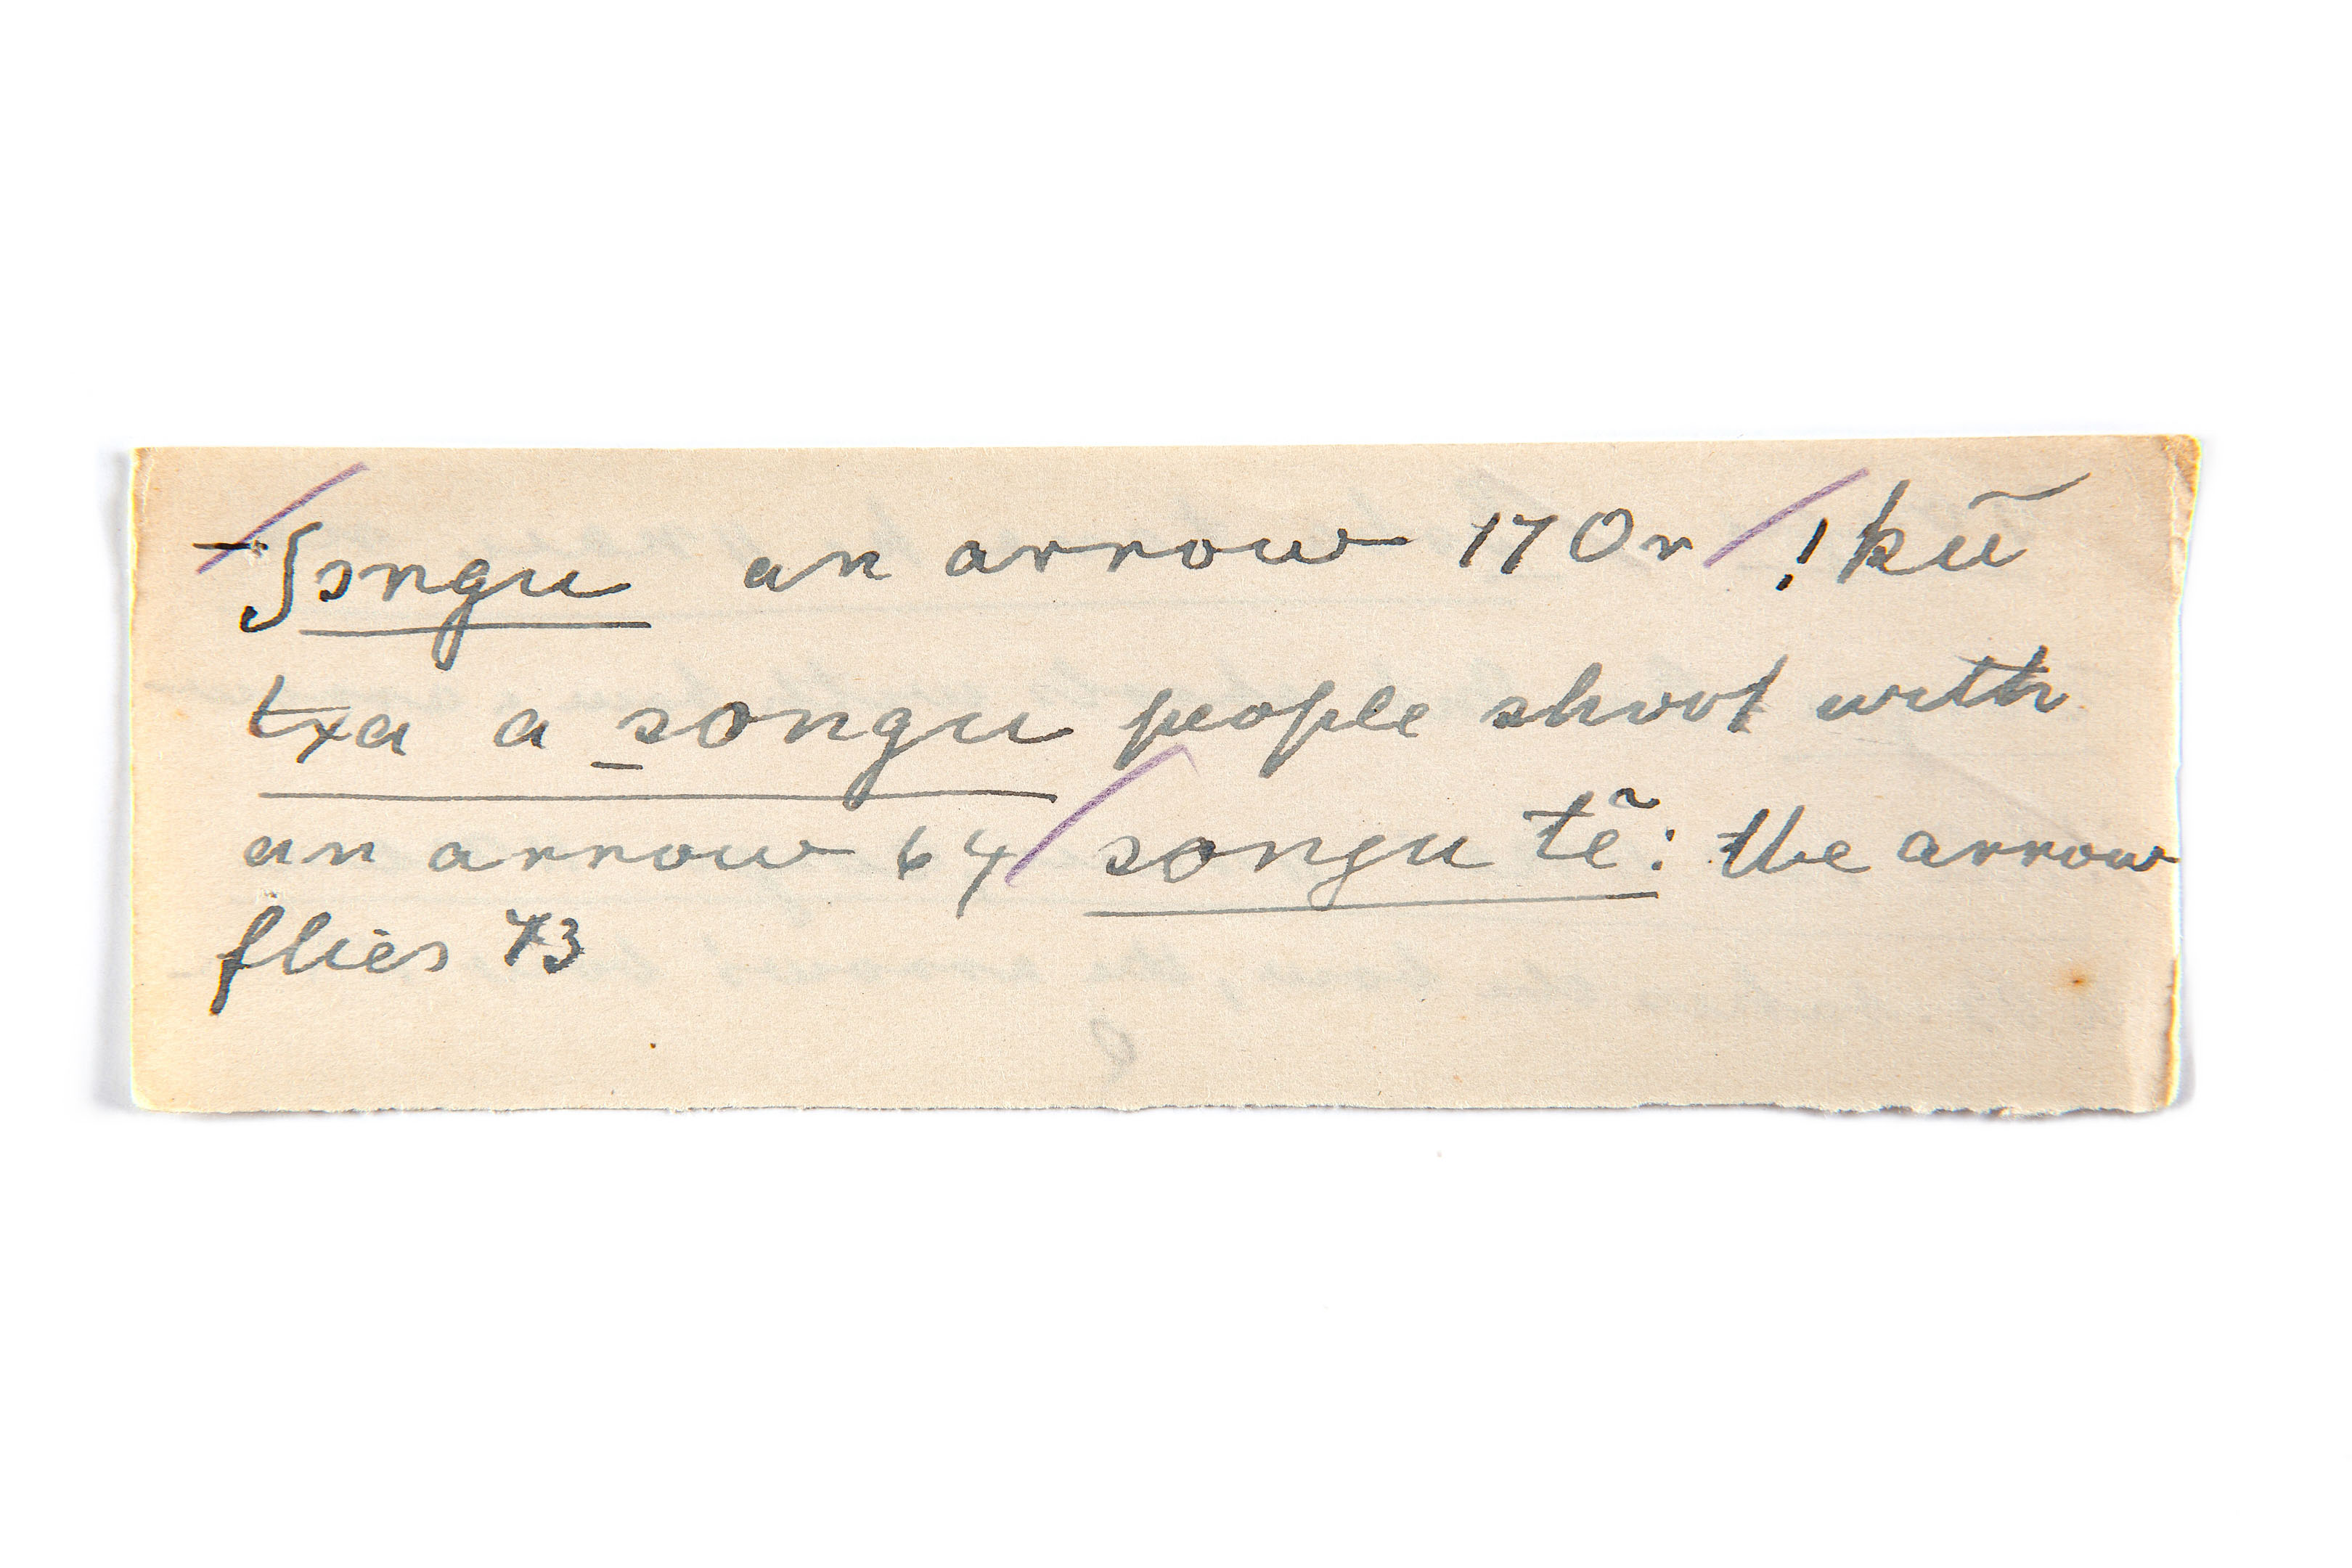 Songu an arrow 170r / !kũ
txa a songu people shoot with
an arrow 64 / songu tẽ: the arrow
flies 73